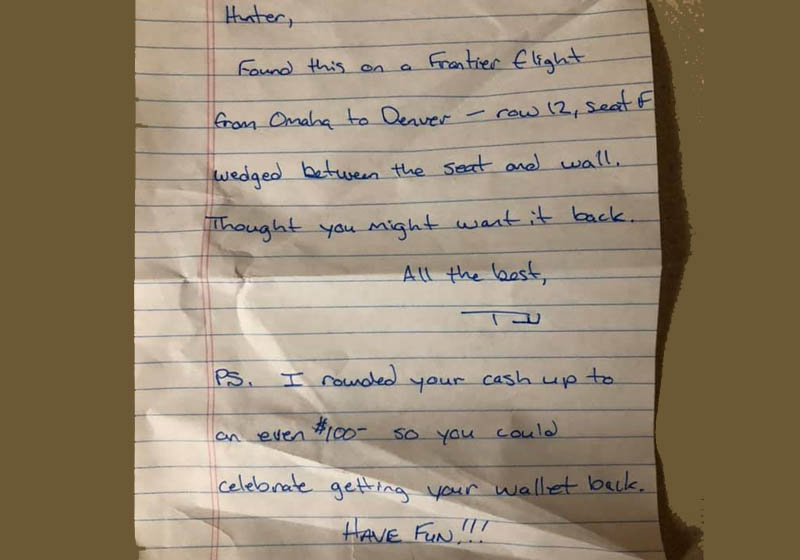 Hunter,
Found this on a Frontier flight
from Omaha to Denver – row 12, seat F
wedged between the seat and wall.
Thought you might want it back.
All the best,
PS. I rounded your cash up to
an even $100- so you could
celebrate getting your wallet back.
HAVE FUN!!!